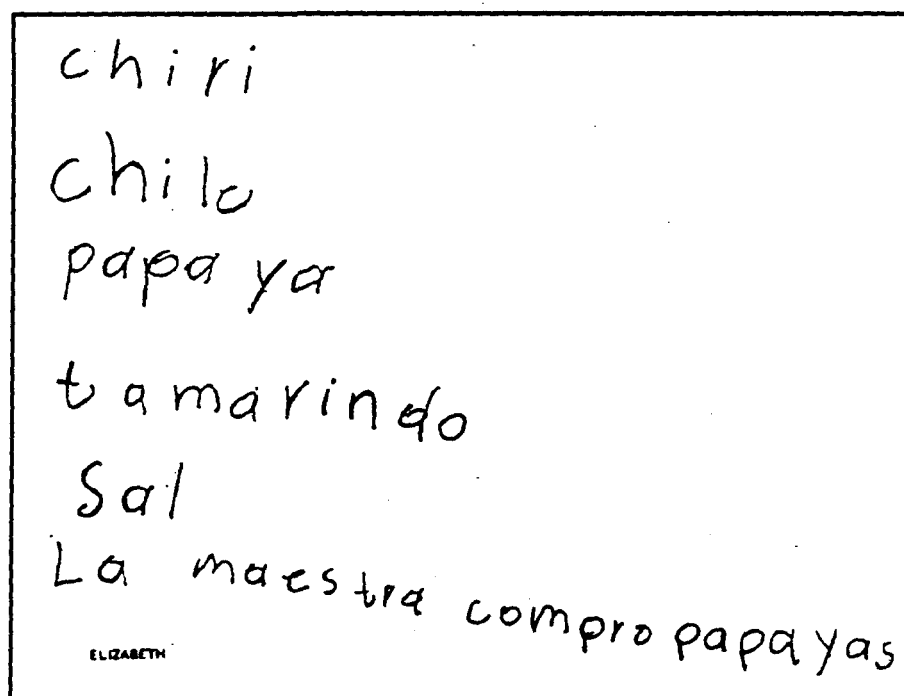 chiri
chilo
papaya
tamarindo
Sal
La maestra compro papayas
ELIZABETH